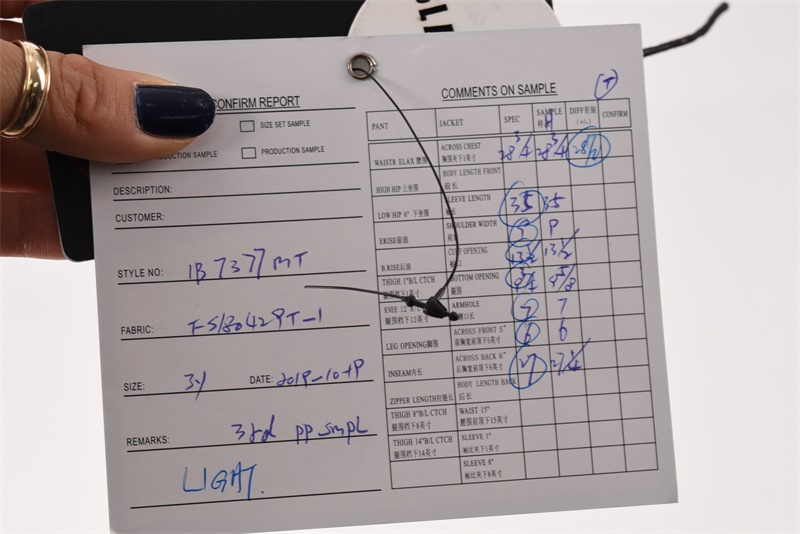 CONFIRM REPORT
SIZE SET SAMPLE
PRODUCTION SAMPLE
DESCRIPTION:
CUSTOMER:
STYLE NO: 1B7377MT
FABRIC: FS180429T-1
SIZE: 3Y DATE: 2019-10-19
REMARKS: 3rd pp smpl
LIGHT.
COMMENTS ON SAMPLE
PANT JACKET SPEC SAMPLE DIFF差别 (+/-) CONFIRM
WAISTR ELAX 腰围 ACROSS CHEST 胸围夹下1英寸 28 3/4 28 3/4 28 1/2
HIGH HIP 上坐围 BODY LENGTH FRONT 前长
LOW HIP 6" 下坐围 SLEEVE LENGTH 35 35
F.RISE前浪 SHOULDER WIDTH
B.RISE后浪 OPENING 13 1/2 13 1/2
THIGH 1"B/L CTCH BOTTOM OPENING
KNEE 12 ARMHOLE 7 7
LEG OPENING脚围 ACROSS FRONT 5" 6 6
INSEAM内长 ACROSS BACK 6" 27 27 3/4
ZIPPER LENGTH拉链长 BODY LENGTH BACK 后长
THIGH 8"B/L CTCH 腿围档下8英寸 WAIST 15" 腰围前顶下15英寸
THIGH 14"B/L CTCH 腿围档下14英寸 SLEEVE 1" 袖比夹下1英寸
SLEEVE 8" 袖比夹下8英寸